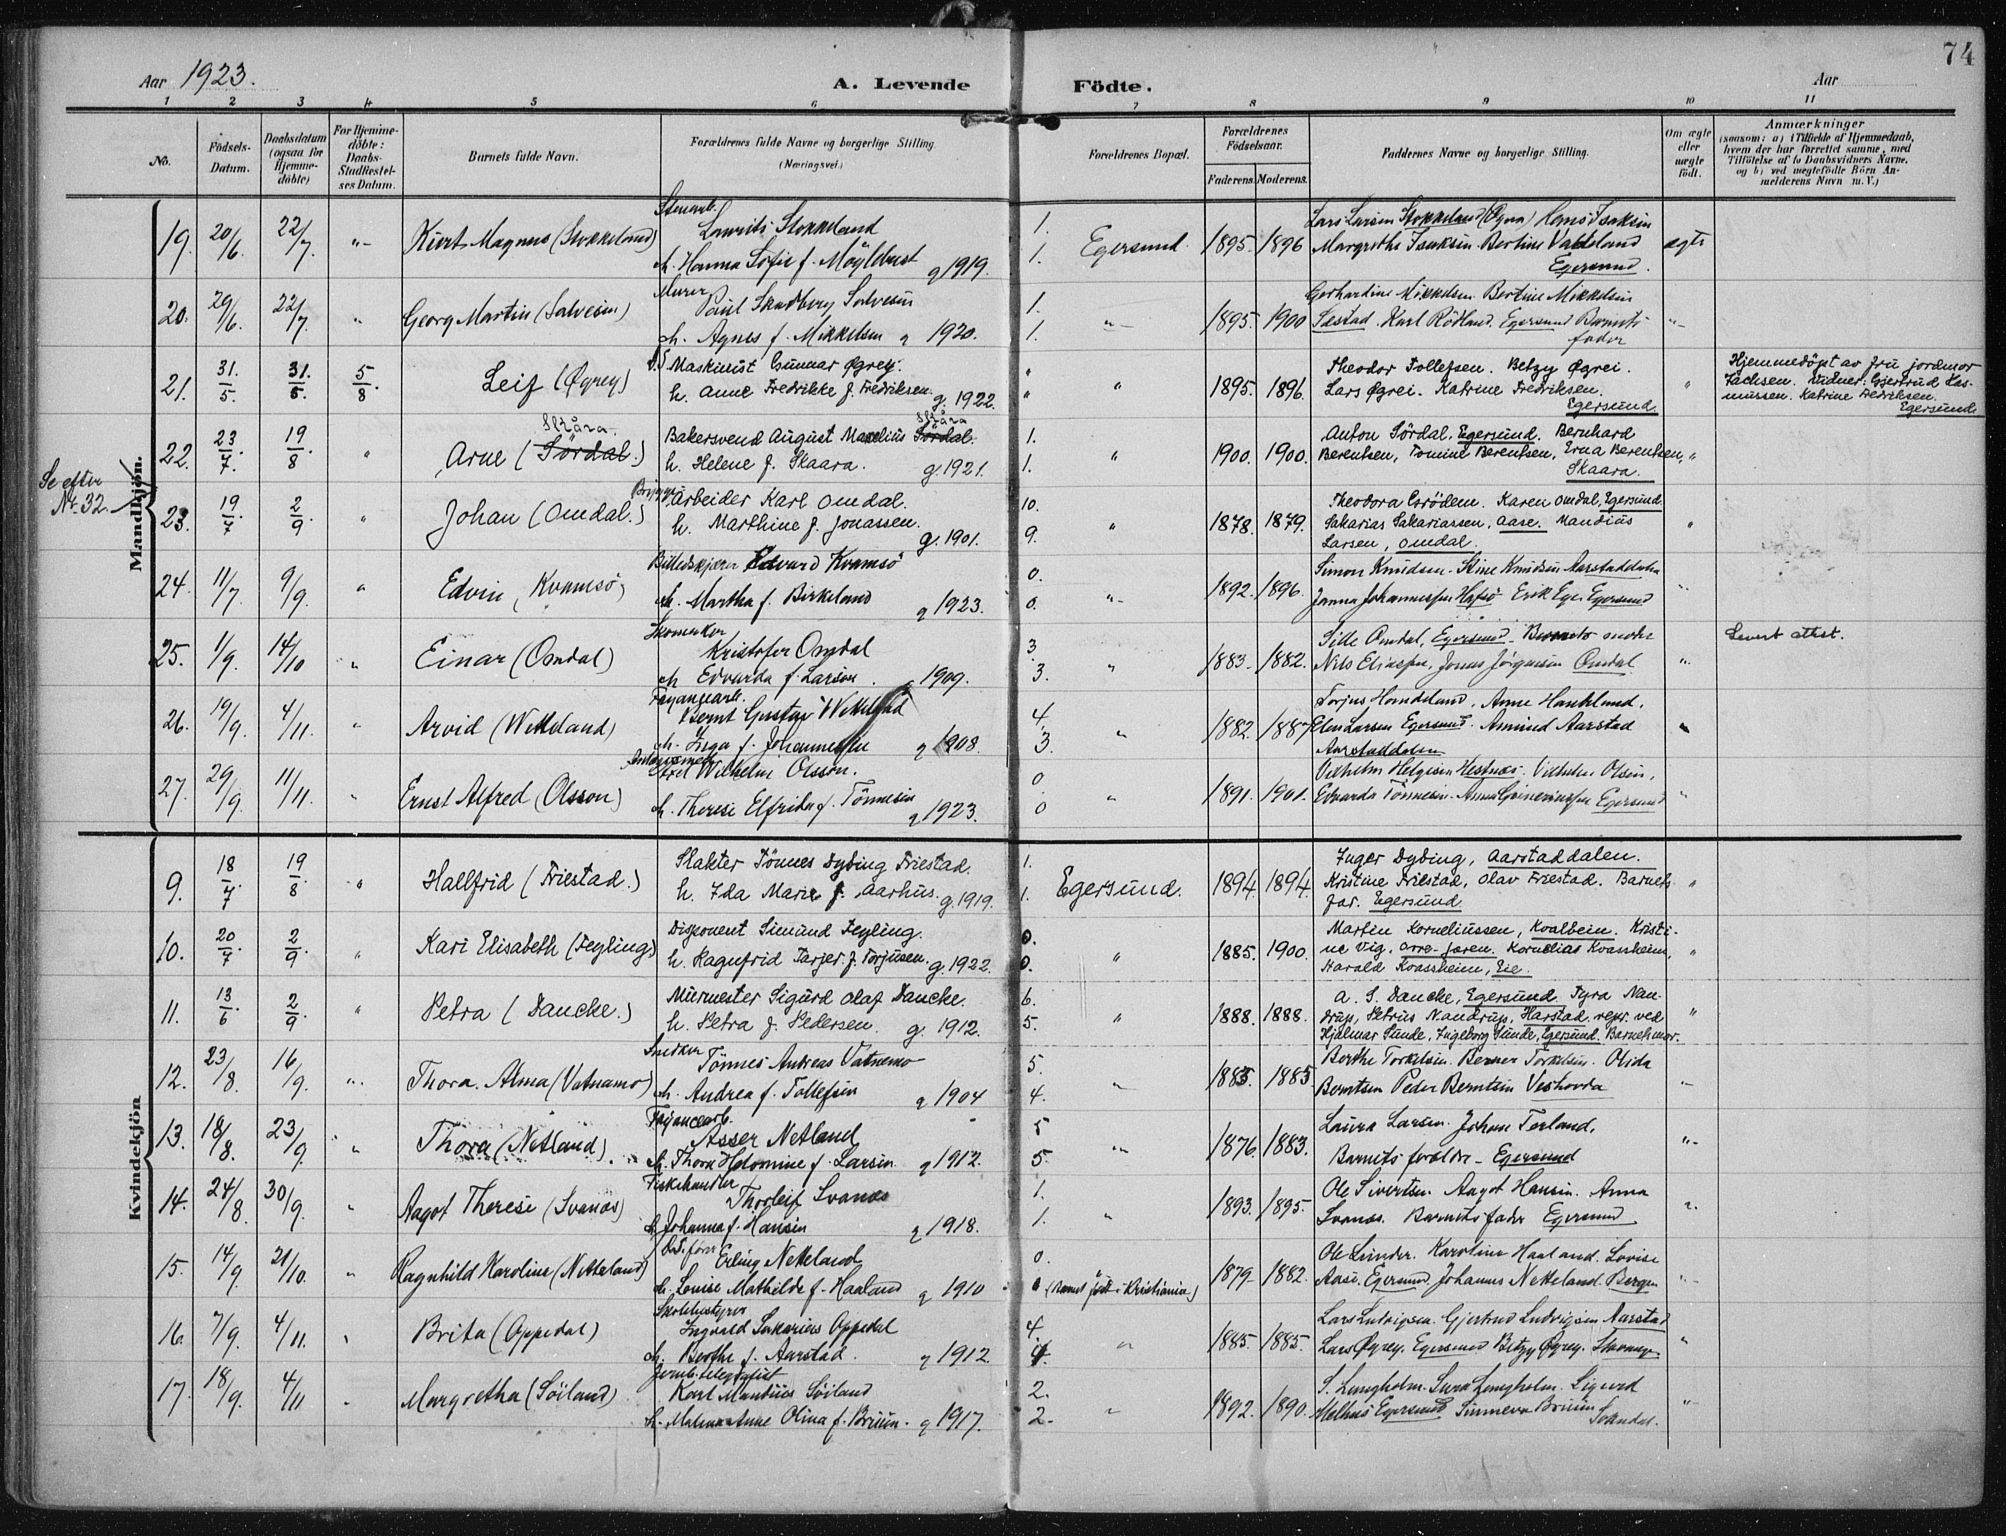 74
Aar 1923.
A. Levende Födte.
Aar
1 2 3 4 5 6 7 8 9 10 11
No.
Födsels-
Datum.
Daabsdatum
(ogsaa for
Hjemme-
döbte)
For Hjemme-
döbte:
Daabs-
Stadfæstel-
ses Datum.
Barnets fulde Navn.
Forældrenes fulde Navne og borgerlige Stilling.
(Næringsvei.)
Forældrenes Bopæl.
Forældrenes
Födselsaar.
Faderens. Moderens.
Faddernes Navne og borgerlige Stilling.
Om ægte
eller
uægte
födt.
Anmærkninger
(saasom: a) i Tilfælde af Hjemmedaab,
hvem der har forrettet samme, med
Tilföielse af to Daabsvidners Navne.
og b) ved uægtefödte Börn An-
melderens Navn m. V.)
Mandkjön.
Se efter
Nr. 32.
19. 20/6 22/7 Kurt Magnus (Stokkeland)
Laurits Stokkeland
h. Hanna Sofie f. Möglebust g 1919.
1. 1. Egersund 1895. 1896
Lars Larsen Stokkeland (Ogna) Hans Isaksen
Margrethe Isaksen. Bertine Vatteland
Egersund.
ægte
20. 29/6. 22/7. " Georg Martin (Salvesen)
Murer
Paul Skadberg Salvesen
h. Agnes f. Mikkelsen g 1920.
1. 1. " 1895. 1900
Gerhardine Mikkelsen. Bertine Mikkelsen
Sæstad. Karl Rödland. Egersund Barnets
fader
21. 31/5. 31/5. 5/8 Leif (Øgrey)
Maskinist Gunnar Øgrey.
h. Anne Fredrikke f. Fredriksen. g. 1922.
" " " 1895. 1896.
Theodor Tollefsen. Betzy Øgrei.
Lars Øgrei. Katrine Fredriksen.
Egersund
"
Hjemmedöpt av fru jordmor
Zachsen. Vidner: Gjertrud Ras-
mussen. Katrine Fredriksen.
Egersund.
22. 23/7. 19/8 " Skåra.
Arne (Sördal.)
Skåra
Bakersvend August Marelius Sördal.
h. Helene f. Skaara. g. 1921.
1. 1. " 1900. 1900.
Anton Sördal, Egersund. Bernhard
Berentsen, Tomine Berentsen, Erna Berentsen,
Skaara.
"
23. 19/7 2/9. " Johan (Omdal.)
Arbeider Karl Omdal.
h. Marthine f. Jonassen. g. 1901.
10. 9. " 1878. 1879.
Theodora Esrödem. Karen Omdal, Egersund.
Sakarias Sakariassen, Aase. Mandius
Larsen, Omdal.
"
24. 11/7 9/9. " Edvin (Kvamsö)
Edvard Kvamsö
h. Martha f. Birkeland g 1923.
0. 0. " 1892. 1896.
Simon Knudsen. Stine Knudsen Aarstaddalen
Janna Johannessen Hafsö Erik Ege. Egersund
25. 1/9. 14/10 " Einar (Omdal)
Skomaker
Kristofer Omdal
h. Edvarda f. Larsen. g 1909.
3 3. " 1883. 1882.
Sille Omdal, Egersund. Barnets moder
Nils Eliassen, Jonas Jörgensen Omdal
Levert attest.
26. 19/9. 4/11. " Arvid (Wetteland)
Fayancearb.
Bernt Gustav Wetteland
h. Inga f. Johannessen g 1908.
4. 3. " 1882. 1887
Torjus Hamdeland. Anne Haukland.
Elen Larsen Egersund. Amind Aarstad
Aarstaddalen
27. 29/9. 11/11. " Ernst Alfred (Olsson)
Axel Wilhelm Olsson.
h. Therese Elfrida f. Tönnesen g 1923.
0 0 " 1891. 1901.
Vilhelm Helgesen Hestnes. Vilhelm Olsen,
Edvarda Tönnesen. Egersund
Kvindekjön
9. 18/7 19/8. " Hallfrid (Friestad.)
Slakter Tönnes Dybing Friestad.
h. Ida Marie f. Aarhus. g. 1919.
1. 1. Egersund. 1894 1894
Inger Dybing, Aarstaddalen.
Kristine Friestad, Olav Friestad. Barnets
far. Egersund
"
10. 20/7 2/9. " Kari Elisabeth (Feyling)
Disponent Simund Feyling.
h. Ragnfrid Tarjer f. Torjusen. g. 1922.
0. 0. " 1885. 1900.
Martin Korneliussen, Kvalbein. Kristi-
ne Vig, Orre-Jæren. Kornelias Kvassheim,
Harald Kvassheim, Eie.
"
11. 13/6 2/9. " Petra (Dancke.)
Murmester Sigurd Olaf Dancke.
h. Petra f. Pedersen. g. 1912.
6. 5. " 1888. 1888.
A. S. Dancke, Egersund. Tyra Nan-
drup, Petrus Nandrup, Harstad, repr. ved
Hjalmar Sunde, Ingeborg Sunde, Egersund. Barnets mor.
"
12. 23/8. 16/9. " Thora Alma (Vatnamo)
Snedker
Tönnes Andreas Vatnamo
h. Andrea f. Tollefsen g 1904
5. 4. " 1885. 1885
Berthe Torkelsen. Berner Torkelsen. Olida
Berntsen Peder Berntsen Veshovda
13. 18/8. 23/9. " Thora (Netland).
Fayancearb.
Asser Netland
h. Thora Halomine f. Larsen g 1912.
5 5. " 1876. 1883.
Laura Larsen. Johan Terland.
Barnets forældre. Egersund
14. 24/8. 30/9. " Aagot Therese (Svanæs)
Fiskehandler
Thorleif Svanæs
h. Johanna f. Hansen g 1918.
1. 1. " 1893. 1895.
Ole Sivertsen. Aagot Hansen. Anna
Svanæs. Barnets fader Egersund
15. 14/9. 21/10. " Ragnhild Karoline (Netteland)
Erling Netteland
h. Louise Mathilde f. Haaland g 1910
0. 0 " (Barnet födt i Kristiania) 1879 1882.
Ole Lunder. Karoline Haaland. Lovise
Aase. Egersund Johannes Netteland. Bergen
16. 7/9. 4/11. " Brita (Oppedal)
Skolebestyrer
Ingvald Sakarias Oppedal
h. Berthe f. Aarstad. g 1912.
4. 4. " 1885. 1885.
Lars Ludvigsen. Gjertrud Ludvigsen Aarstad
Lars Øgrey. Egersund Betzy Øgrey. Stavanger.
17. 18/9. 4/11 " Margretha (Söiland)
Jernb. telegrafist
Karl Mandius Söiland
h. Malena Anne Olina f. Bruun. g 1917.
2. 2. " 1892. 1890.
S. Langholm. Sara Langholm. Sigurd
Melhus Egersund Sunneva Bruun